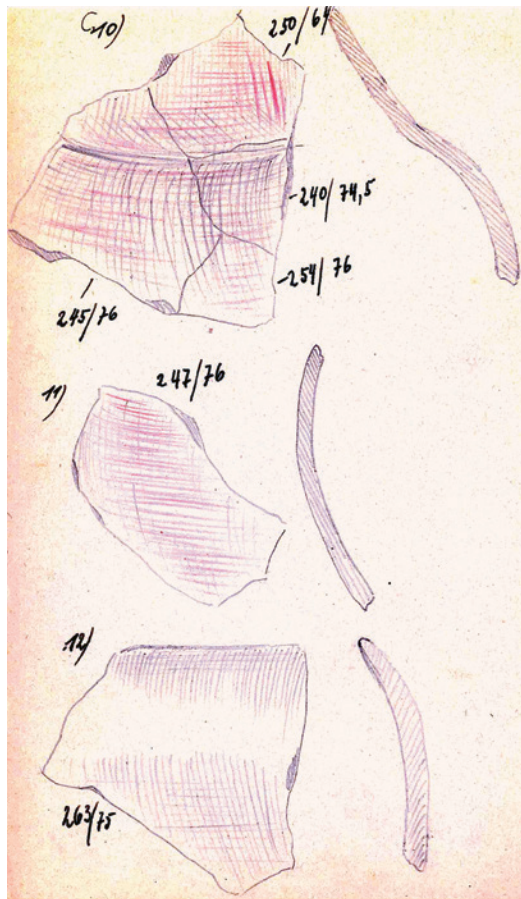 10)
250/64
240/74,5
254/76
245/76
11)
247/76
12)
263/75